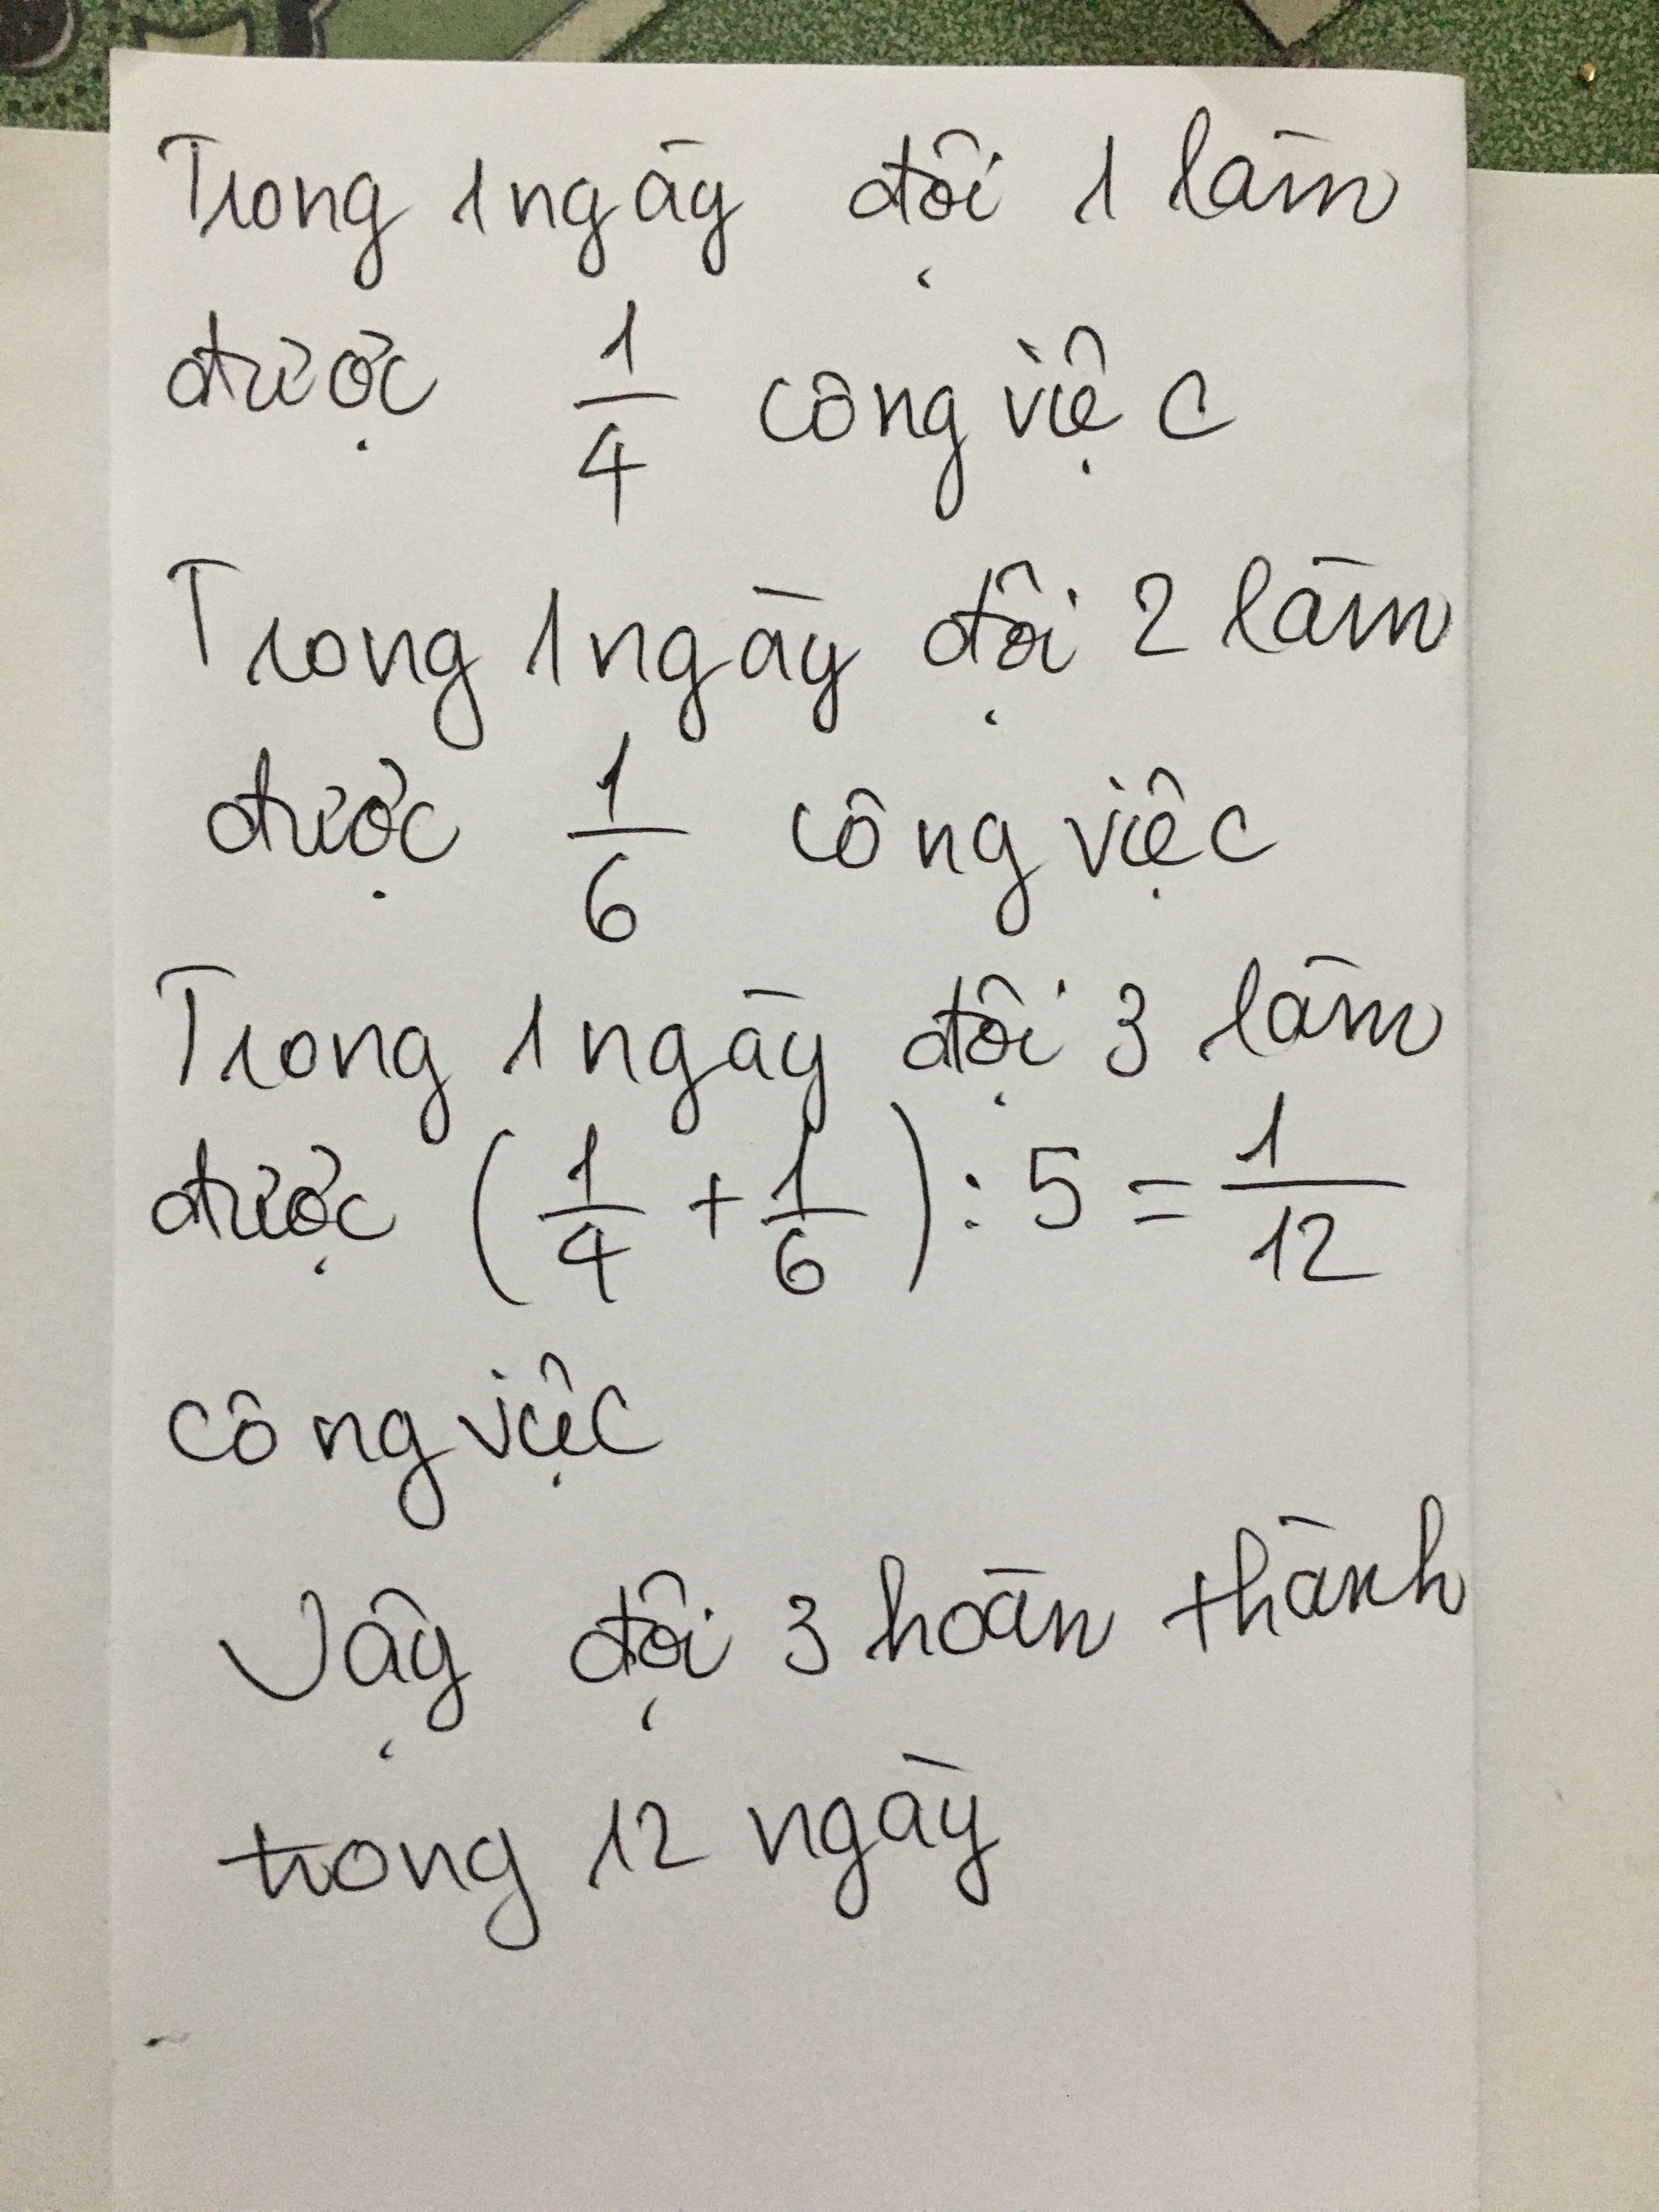 Trong 1 ngày đội 1 làm
được 1/4 công việc
Trong 1 ngày đội 2 làm
được 1/6 công việc
Trong 1 ngày đội 3 làm
được (1/4 + 1/6) : 5 = 1/12
công việc
Vậy đội 3 hoàn thành
trong 12 ngày